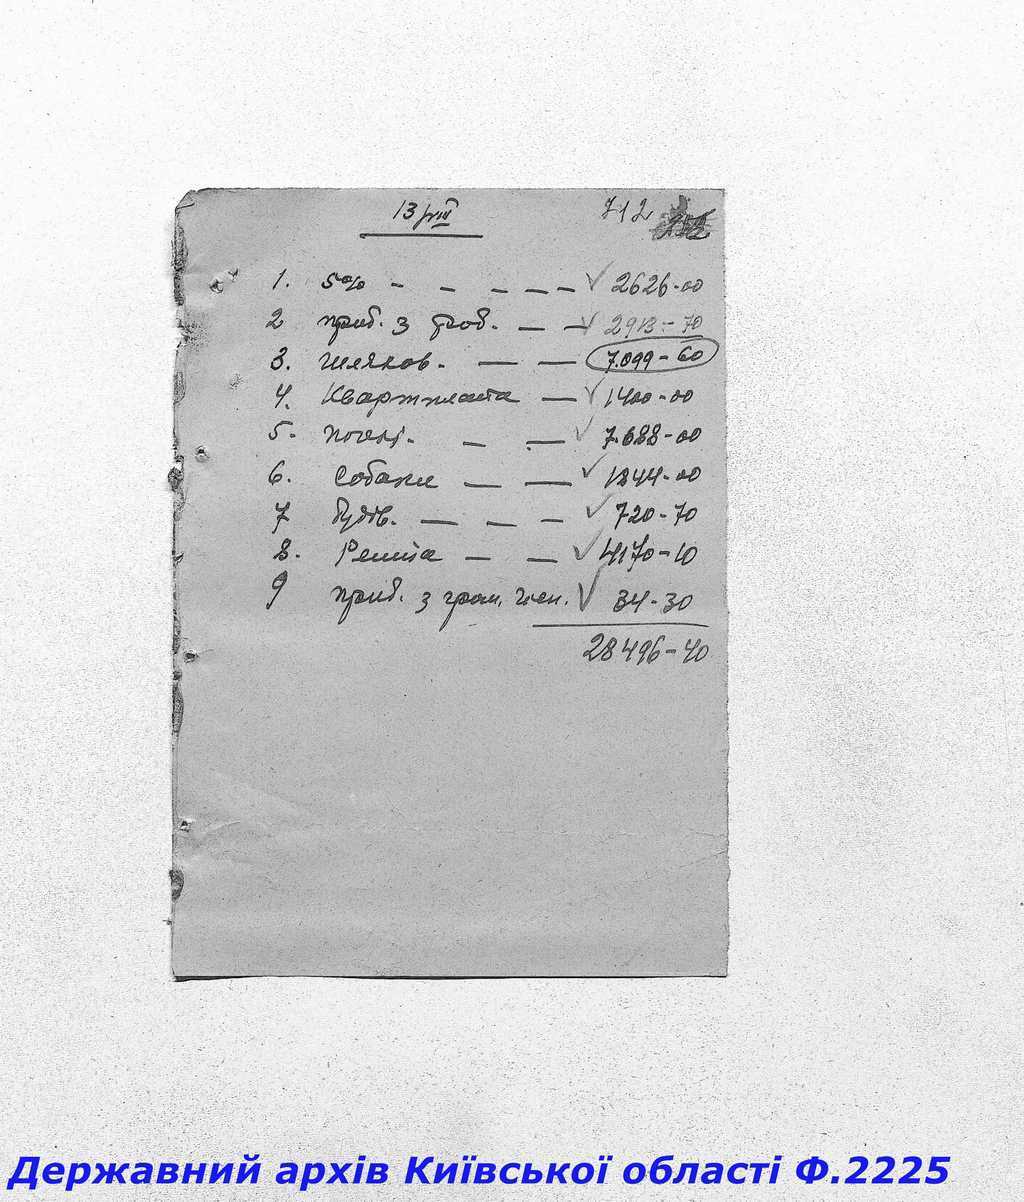 13 712
1. 5% - - - - - 2626-00
2 приб. з - - 2913-70
3. шляхов. - - 7.099-60
4. Квартплата - 1400-00
5. - - 7.688-00
6. Собаки - - 1844-00
7 будів. - - - 720-70
8. Решта - - 4170-10
9 приб. з гром. 34-30
28496-40
Державний архів Київської області Ф.2225